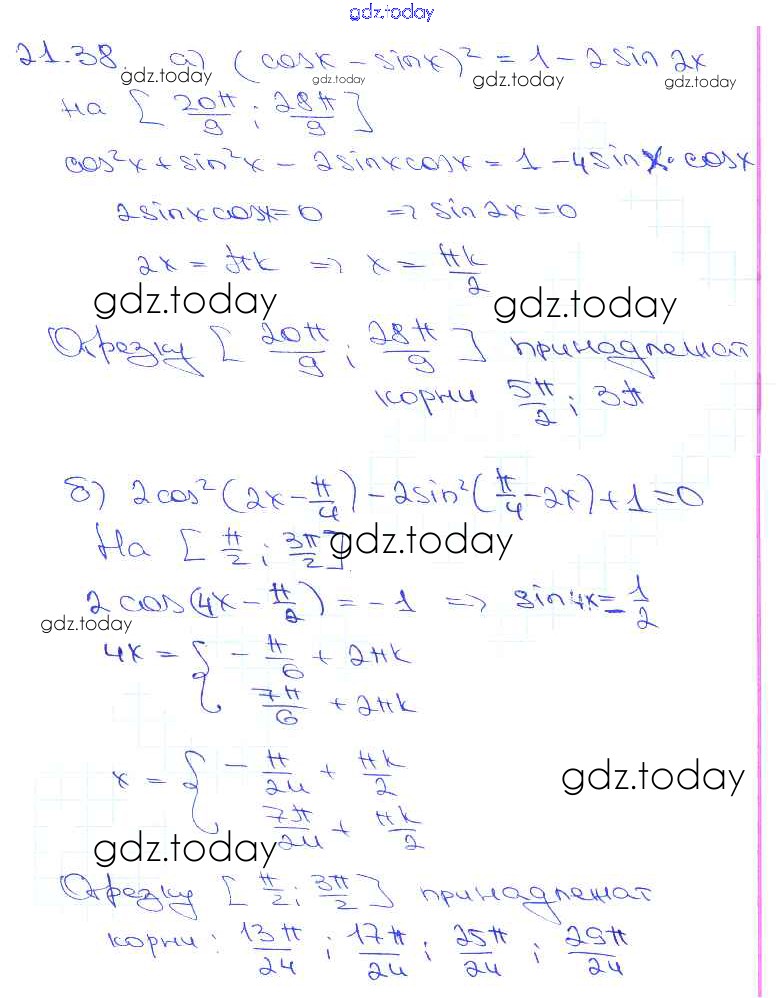 gdz.today
21.38. а) (cosx − sinx)² = 1 − 2sin2x
gdz.today gdz.today gdz.today gdz.today
на [20π/9 ; 28π/9]
cos²x + sin²x − 2sinxcosx = 1 − 4sinx·cosx
2sinxcosx=0 => sin2x=0
2x = πk => x = πk/2
gdz.today gdz.today
Отрезку [20π/9 ; 28π/9] принадлежат
корни 5π/2 ; 3π
б) 2cos²(2x − π/4) − 2sin²(π/4 − 2x) + 1 = 0
На [π/2 ; 3π/2] gdz.today
2cos(4x − π/2) = −1 => sin4x = 1/2
gdz.today
4x = { −π/6 + 2πk
7π/6 + 2πk
x = { −π/24 + πk/2
gdz.today
7π/24 + πk/2
gdz.today
Отрезку [π/2 ; 3π/2] принадлежат
корни: 13π/24 ; 17π/24 ; 25π/24 ; 29π/24